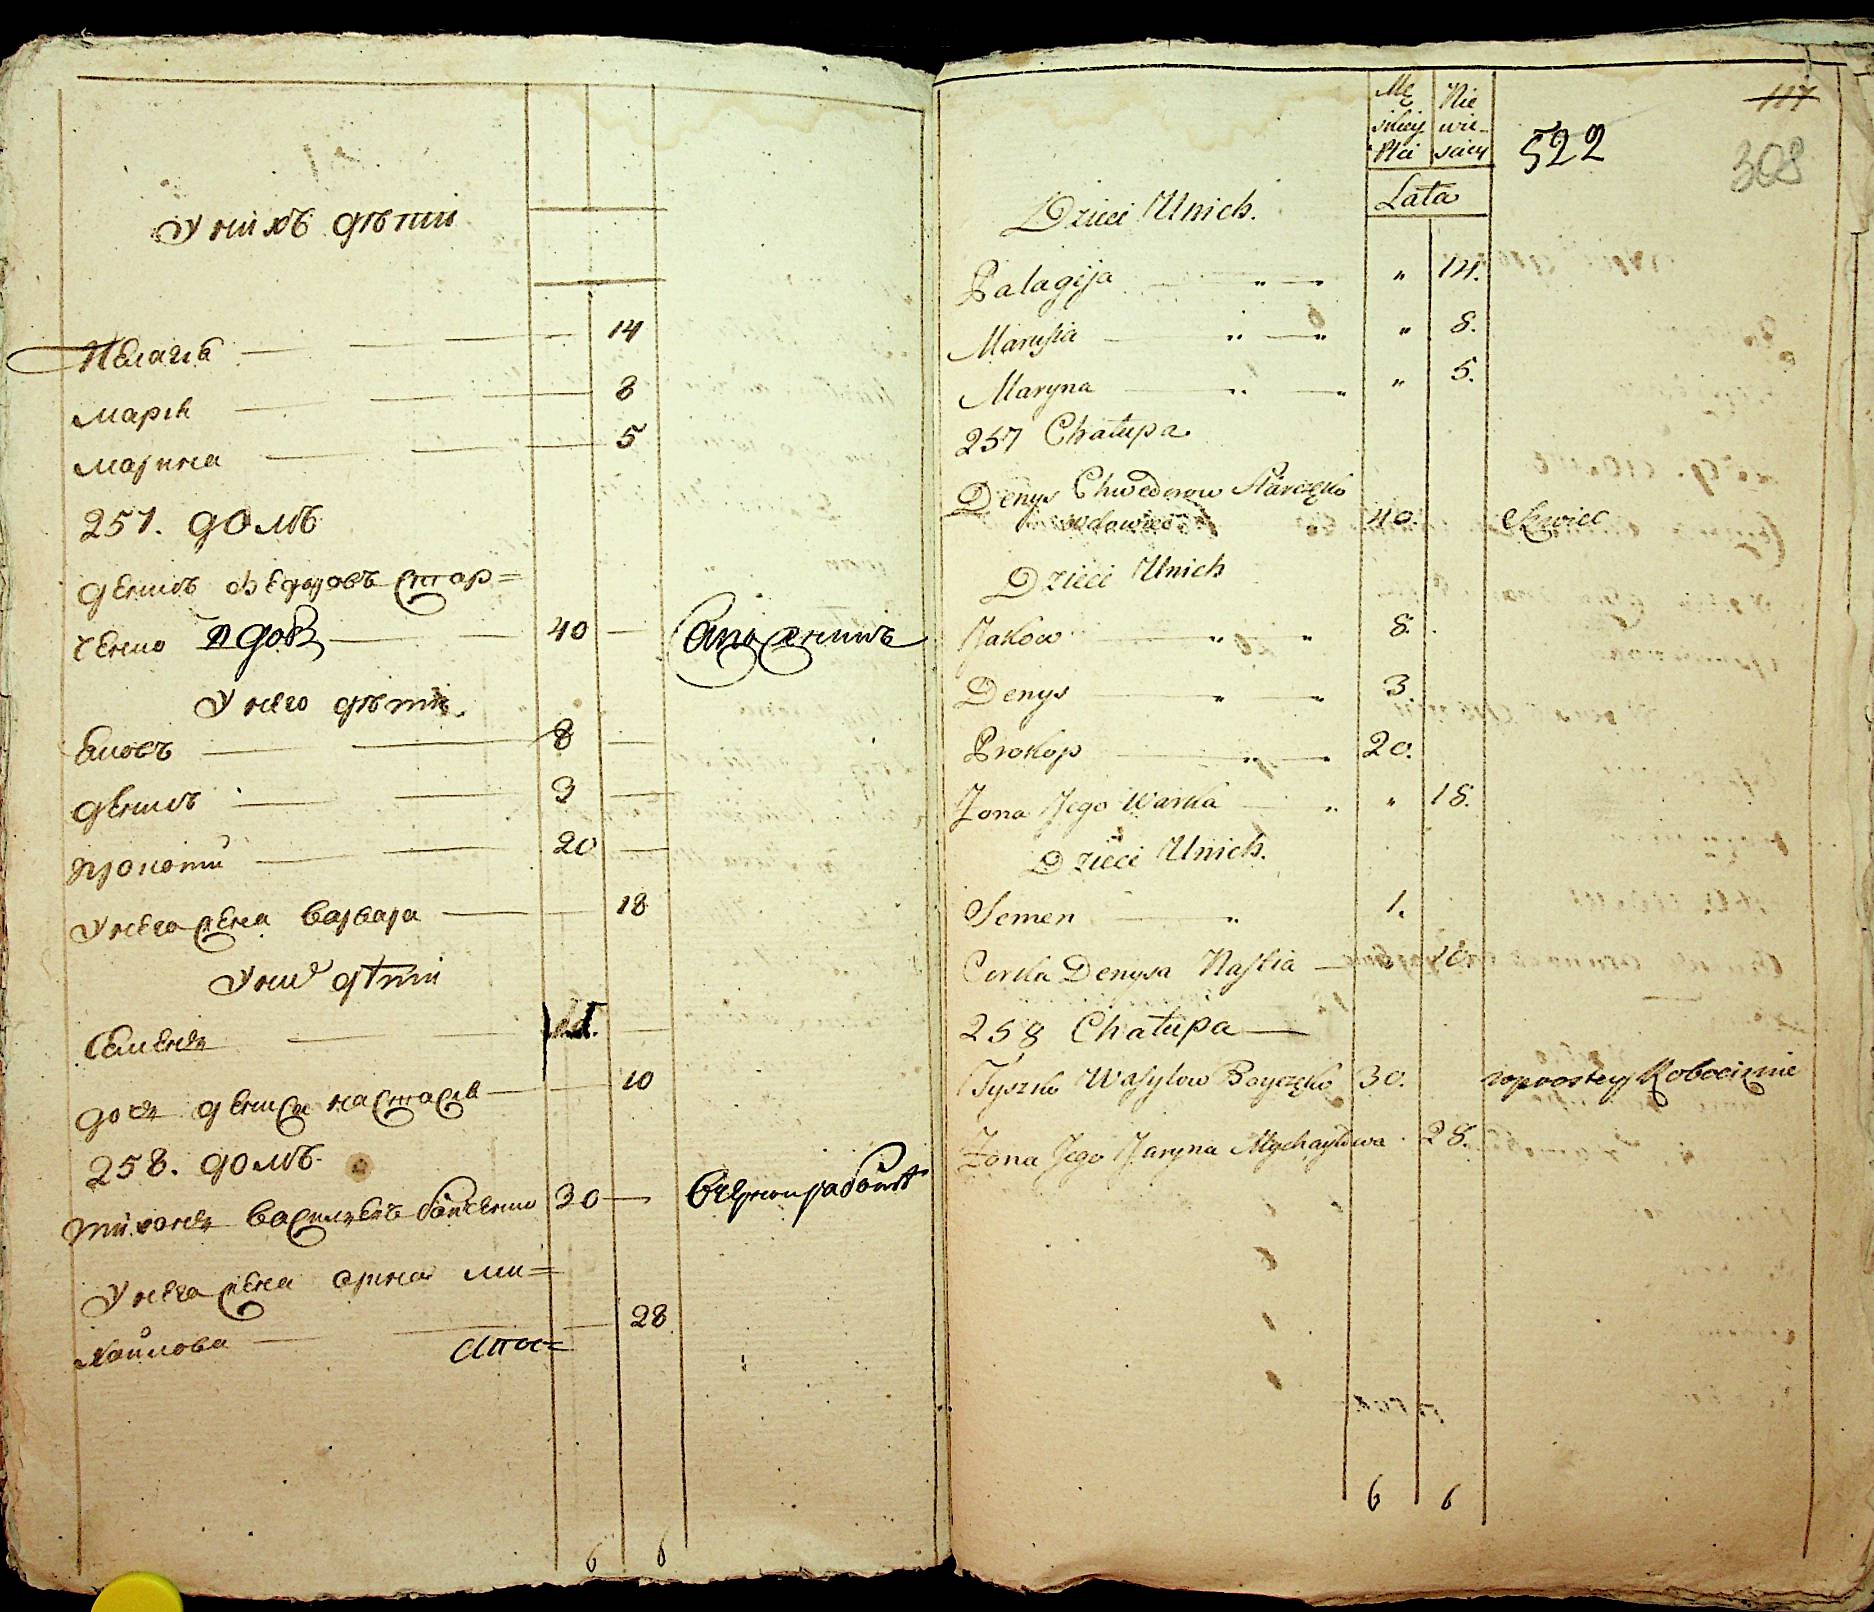 У нихъ дѣтии
Пелагѣя 14
Мария 8
Марина 5
257. домъ
Денисъ Федоровъ Стар=
ченко вдов 40 Сапожникъ
У него дѣти
Яковъ 8
Денисъ 3
Прокопий 20
У него жена Варвара 18
У них дѣтии
Семенъ
дочь Дениса Настасия 10
258. домъ
Тихонъ Василиевъ Бойченко 30 в черной работѣ
У него жена Арина Ми=
хайлова 28
6 6
Mę Nie
skiey wie-
Płci sciey
522
117
308
Lata
Dzieci Unich.
Palagija " 14.
Marysia " 8.
Maryna " 5.
257 Chałupa
Denys Chwedorow Starczęko
wdowiec 40. Szwiec
Dzieci Unich
Jakow 8.
Denys 3.
Prokop 20.
Zona Jego Warka " 18.
Dzieci Unich.
Semen 1.
Corka Denysa Nastia 10.
258 Chałupa
Tyszko Wasylow Boyczęko 30. w prostey Robociznie
Zona Jego Jaryna Mychayłowa 28.
6 6